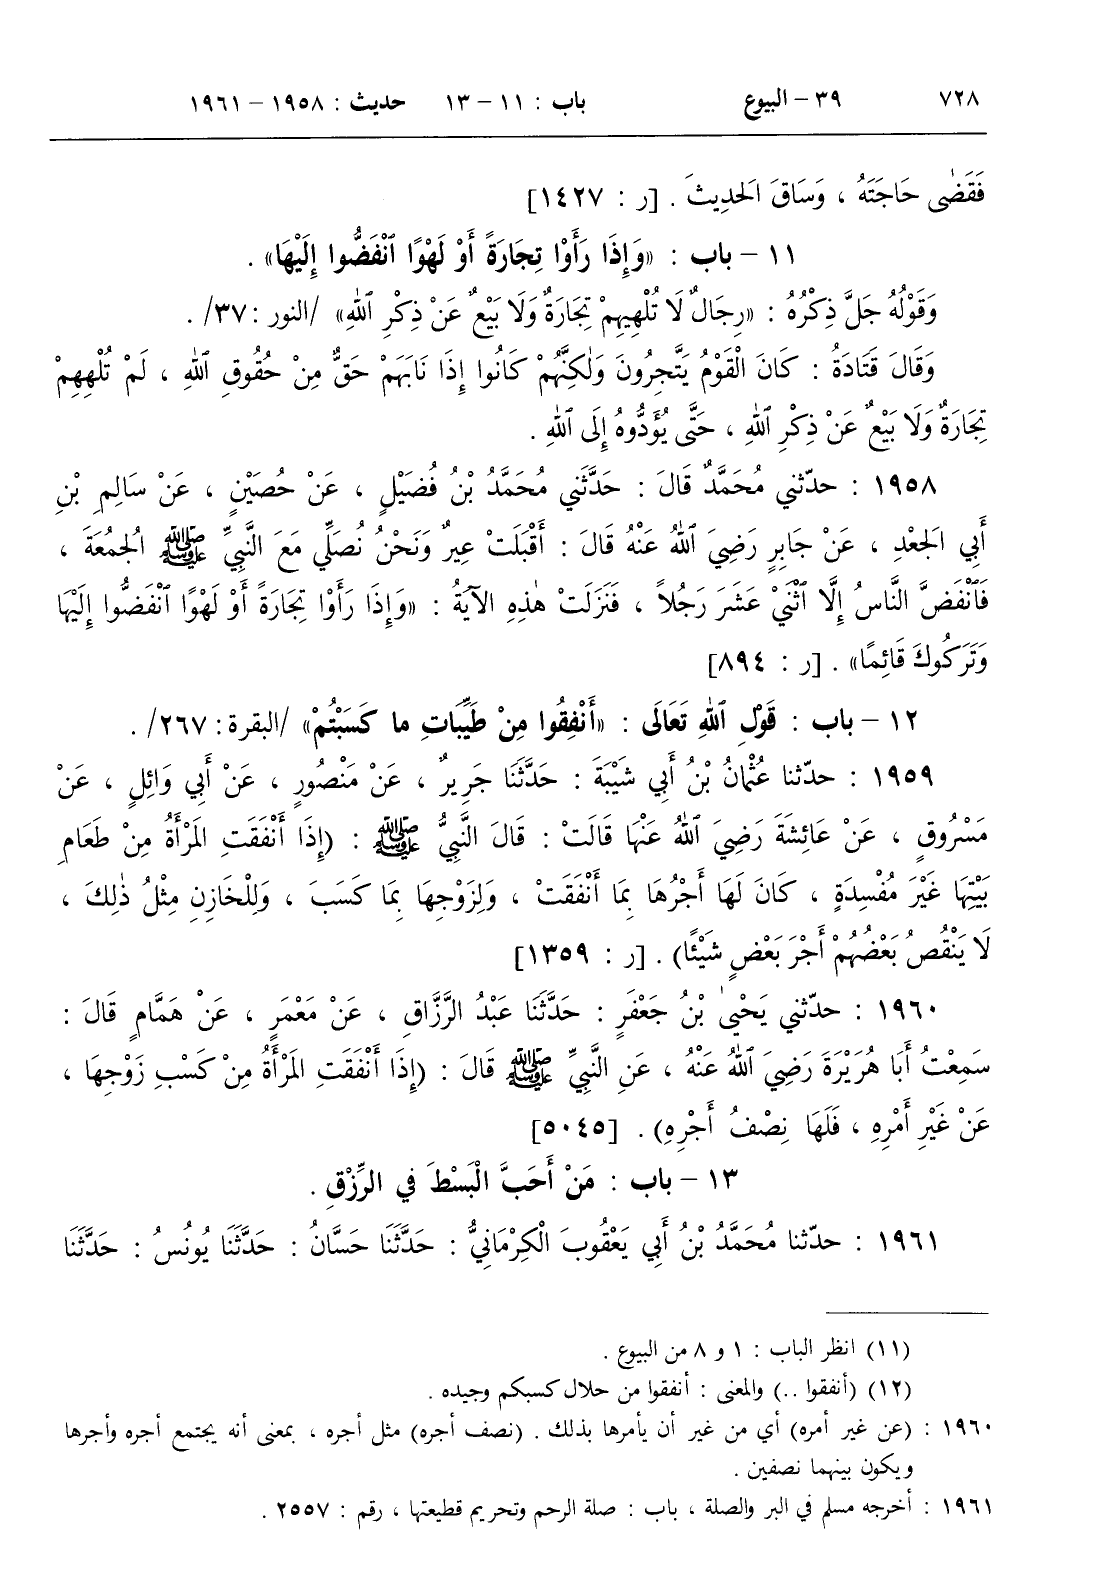 ٧٢٨ ٣٩ – البيوع باب : ١١ – ١٣ حديث : ١٩٥٨ – ١٩٦١
فَقَضٰى حَاجَتَهُ ، وَسَاقَ الحَدِيثَ . [ر : ١٤٢٧]
١١ – باب : «وَإِذَا رَأَوْا تِجَارَةً أَوْ لَهْوًا ٱنْفَضُّوا إِلَيْهَا» .
وَقَوْلُهُ جَلَّ ذِكْرُهُ : «رِجَالٌ لَا تُلْهِيهِمْ تِجَارَةٌ وَلَا بَيْعٌ عَنْ ذِكْرِ ٱللهِ» /النور :٣٧/ .
وَقَالَ قَتَادَةُ : كَانَ الْقَوْمُ يَتَّجِرُونَ وَلٰكِنَّهُمْ كَانُوا إِذَا نَابَهُمْ حَقٌّ مِنْ حُقُوقِ ٱللهِ ، لَمْ تُلْهِهِمْ
تِجَارَةٌ وَلَا بَيْعٌ عَنْ ذِكْرِ ٱللهِ ، حَتَّى يُؤَدُّوهُ إِلَى ٱللهِ .
١٩٥٨ : حدّثني مُحَمَّدٌ قَالَ : حَدَّثَنِي مُحَمَّدُ بْنُ فُضَيْلٍ ، عَنْ حُصَيْنٍ ، عَنْ سَالِمِ بْنِ
أَبِي الجَعْدِ ، عَنْ جَابِرٍ رَضِيَ ٱللهُ عَنْهُ قَالَ : أَقْبَلَتْ عِيرٌ وَنَحْنُ نُصَلِّي مَعَ النَّبِيِّ ﷺ الجُمُعَةَ ،
فَٱنْفَضَّ النَّاسُ إِلَّا ٱثْنَيْ عَشَرَ رَجُلاً ، فَنَزَلَتْ هٰذِهِ الآيَةُ : «وَإِذَا رَأَوْا تِجَارَةً أَوْ لَهْوًا ٱنْفَضُّوا إِلَيْهَا
وَتَرَكُوكَ قَائِمًا» . [ر : ٨٩٤]
١٢ – باب : قَوْلِ ٱللهِ تَعَالَى : «أَنْفِقُوا مِنْ طَيِّبَاتِ ما كَسَبْتُمْ» /البقرة : ٢٦٧/ .
١٩٥٩ : حدّثنا عُثْمَانُ بْنُ أَبِي شَيْبَةَ : حَدَّثَنَا جَرِيرٌ ، عَنْ مَنْصُورٍ ، عَنْ أَبِي وَائِلٍ ، عَنْ
مَسْرُوقٍ ، عَنْ عَائِشَةَ رَضِيَ ٱللهُ عَنْهَا قَالَتْ : قَالَ النَّبِيُّ ﷺ : (إِذَا أَنْفَقَتِ المَرْأَةُ مِنْ طَعَامِ
بَيْتِهَا غَيْرَ مُفْسِدَةٍ ، كَانَ لَهَا أَجْرُهَا بِمَا أَنْفَقَتْ ، وَلِزَوْجِهَا بِمَا كَسَبَ ، وَلِلْخَازِنِ مِثْلُ ذٰلِكَ ،
لَا يَنْقُصُ بَعْضُهُمْ أَجْرَ بَعْضٍ شَيْئًا) . [ر : ١٣٥٩]
١٩٦٠ : حدّثني يَحْيىٰ بْنُ جَعْفَرٍ : حَدَّثَنَا عَبْدُ الرَّزَّاقِ ، عَنْ مَعْمَرٍ ، عَنْ هَمَّامٍ قَالَ :
سَمِعْتُ أَبَا هُرَيْرَةَ رَضِيَ ٱللهُ عَنْهُ ، عَنِ النَّبِيِّ ﷺ قَالَ : (إِذَا أَنْفَقَتِ المَرْأَةُ مِنْ كَسْبِ زَوْجِهَا ،
عَنْ غَيْرِ أَمْرِهِ ، فَلَهَا نِصْفُ أَجْرِهِ) . [٥٠٤٥]
١٣ – باب : مَنْ أَحَبَّ الْبَسْطَ فِي الرِّزْقِ .
١٩٦١ : حدّثنا مُحَمَّدُ بْنُ أَبِي يَعْقُوبَ الْكِرْمَانِيُّ : حَدَّثَنَا حَسَّانُ : حَدَّثَنَا يُونُسُ : حَدَّثَنَا
(١١) انظر الباب : ١ و ٨ من البيوع .
(١٢) (أنفقوا ..) والمعنى : أنفقوا من حلال كسبكم وجيده .
١٩٦٠ : (عن غير أمره) أي من غير أن يأمرها بذلك . (نصف أجره) مثل أجره ، بمعنى أنه يجتمع أجره وأجرها
ويكون بينهما نصفين .
١٩٦١ : أخرجه مسلم في البر والصلة ، باب : صلة الرحم وتحريم قطيعتها ، رقم : ٢٥٥٧ .